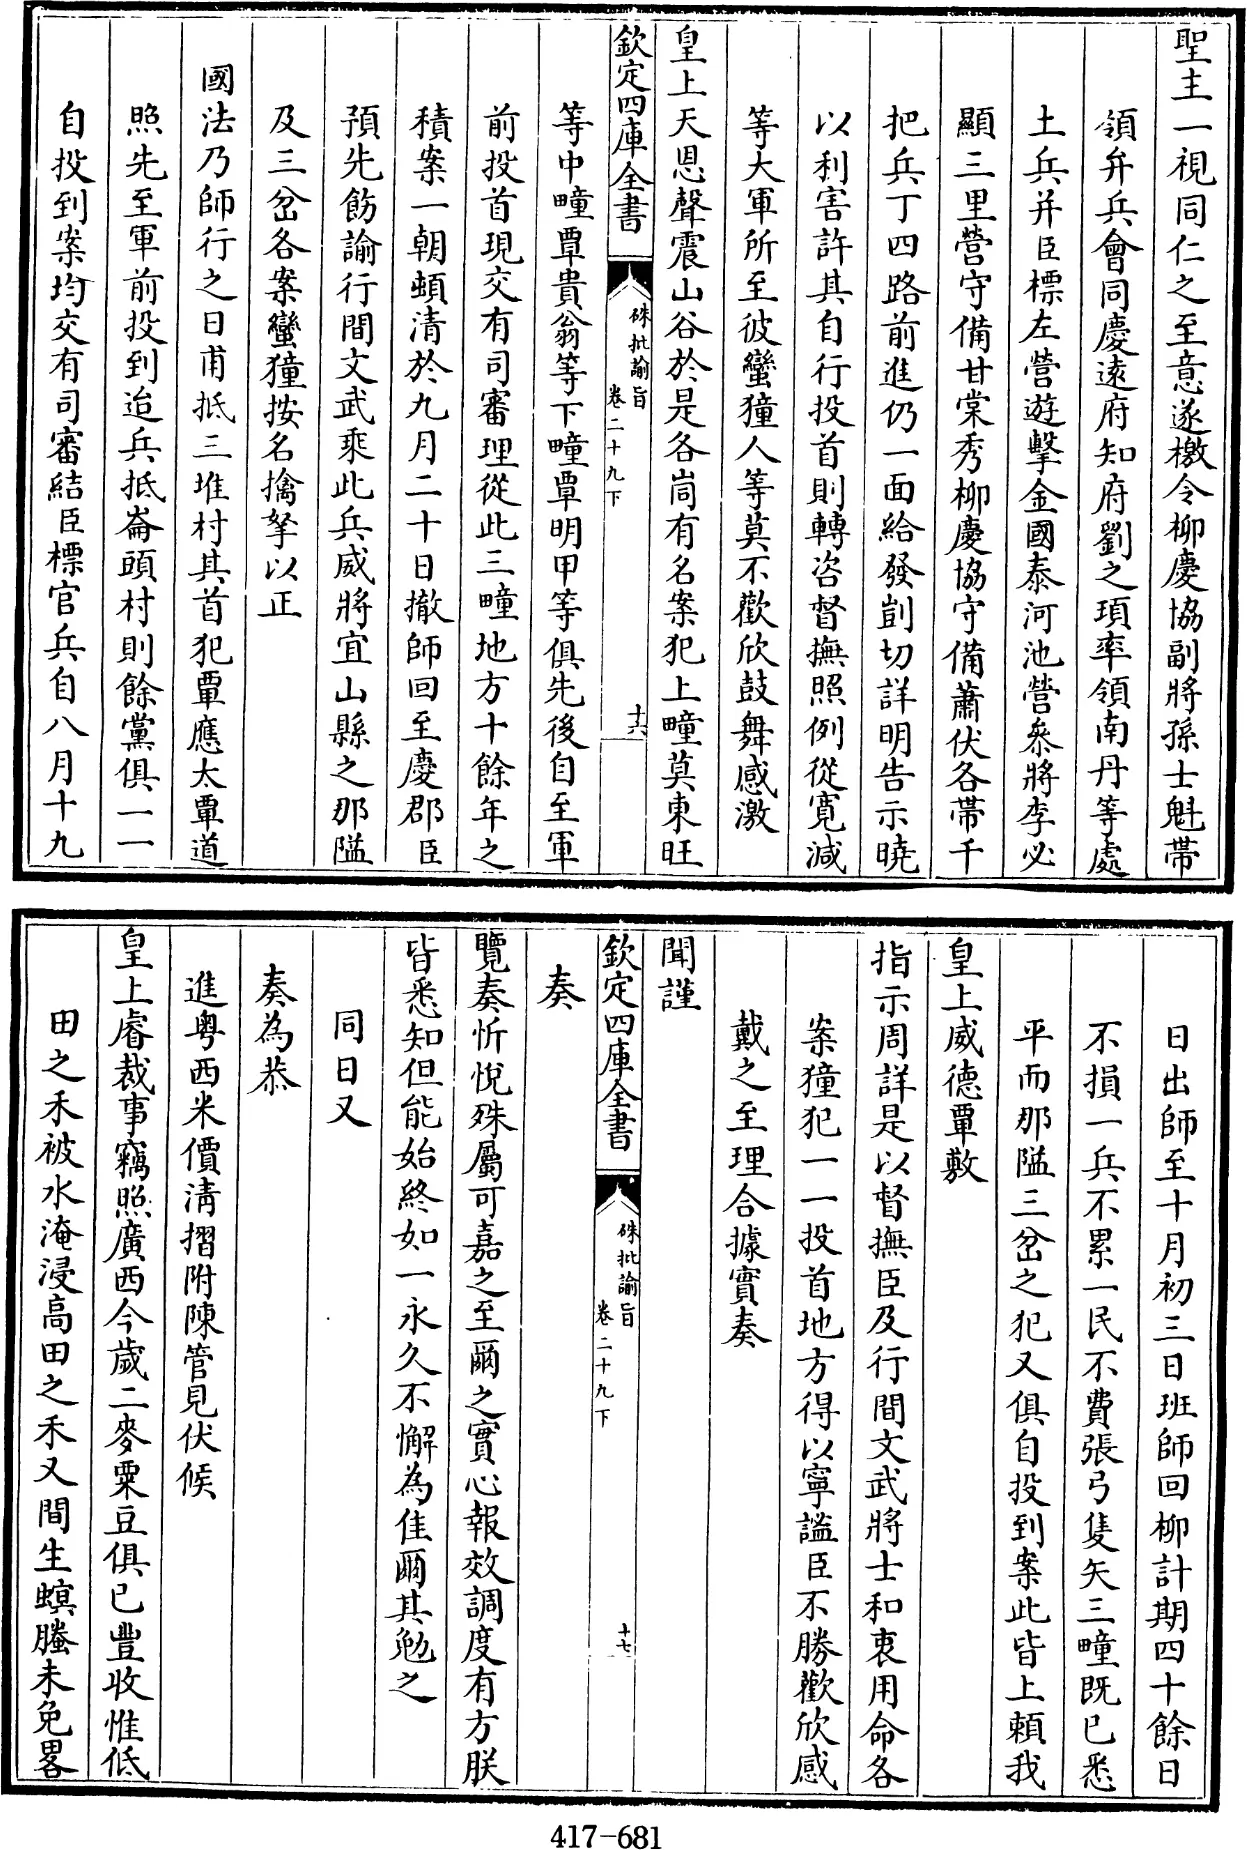 聖主一視同仁之至意遂檄令柳慶協副將孫士魁帶
領弁兵會同慶遠府知府劉之頊率領南丹等處
土兵并臣標左營遊擊金國泰河池營叅將李必
顯三里營守備甘棠秀柳慶協守備蕭伏各帶千
把兵丁四路前進仍一面給發剴切詳明告示曉
以利害許其自行投首則轉咨督撫照例從寛減
等大軍所至彼蠻獞人等莫不歡欣鼓舞感激
皇上天恩聲震山谷於是各峝有名案犯上疃莫東旺
欽定四庫全書
硃批諭旨
卷二十九下
十六
等中疃覃貴翁等下疃覃明甲等俱先後自至軍
前投首現交有司審理從此三疃地方十餘年之
積案一朝頓清於九月二十日撤師回至慶郡臣
預先飭諭行間文武乘此兵威將宜山縣之那隘
及三岔各案蠻獞按名擒拏以正
國法乃師行之日甫抵三堆村其首犯覃應太覃道
照先至軍前投到迨兵抵崙頭村則餘黨俱一一
自投到案均交有司審結臣標官兵自八月十九
日出師至十月初三日班師回柳計期四十餘日
不損一兵不累一民不費張弓隻矢三疃既已悉
平而那隘三岔之犯又俱自投到案此皆上頼我
皇上威德覃敷
指示周詳是以督撫臣及行間文武將士和衷用命各
案獞犯一一投首地方得以寧謐臣不勝歡欣感
戴之至理合據實奏
聞謹
欽定四庫全書
硃批諭旨
卷二十九下
十七
奏
覽奏忻悅殊屬可嘉之至爾之實心報效調度有方朕
皆悉知但能始終如一永久不懈為佳爾其勉之
同日又
奏為恭
進粤西米價清摺附陳管見伏候
皇上睿裁事竊照廣西今歲二麥粟豆俱已豐收惟低
田之禾被水淹浸高田之禾又間生螟螣未免畧
417-681